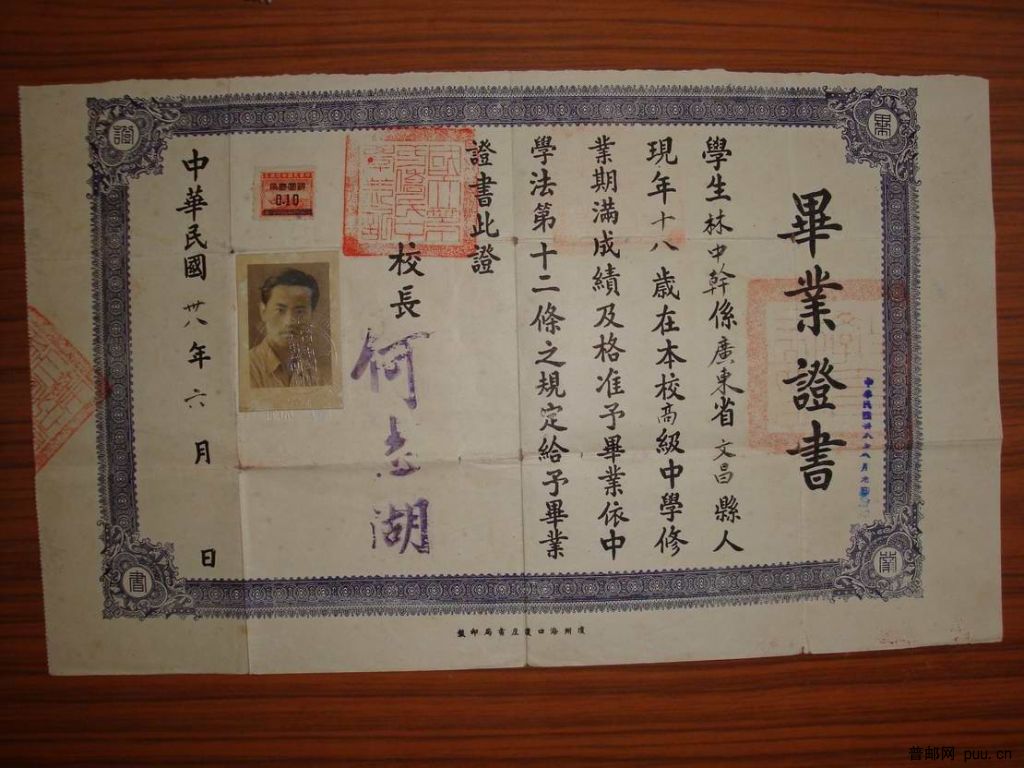 畢業證書
學生林中幹係廣東省文昌縣人
現年十八歲在本校高級中學修
業期滿成績及格准予畢業依中
學法第十二條之規定給予畢業
證書此證
校長
何志湖
中華民國卅八年六月 日
0.10
證
書
普邮网 puu.cn